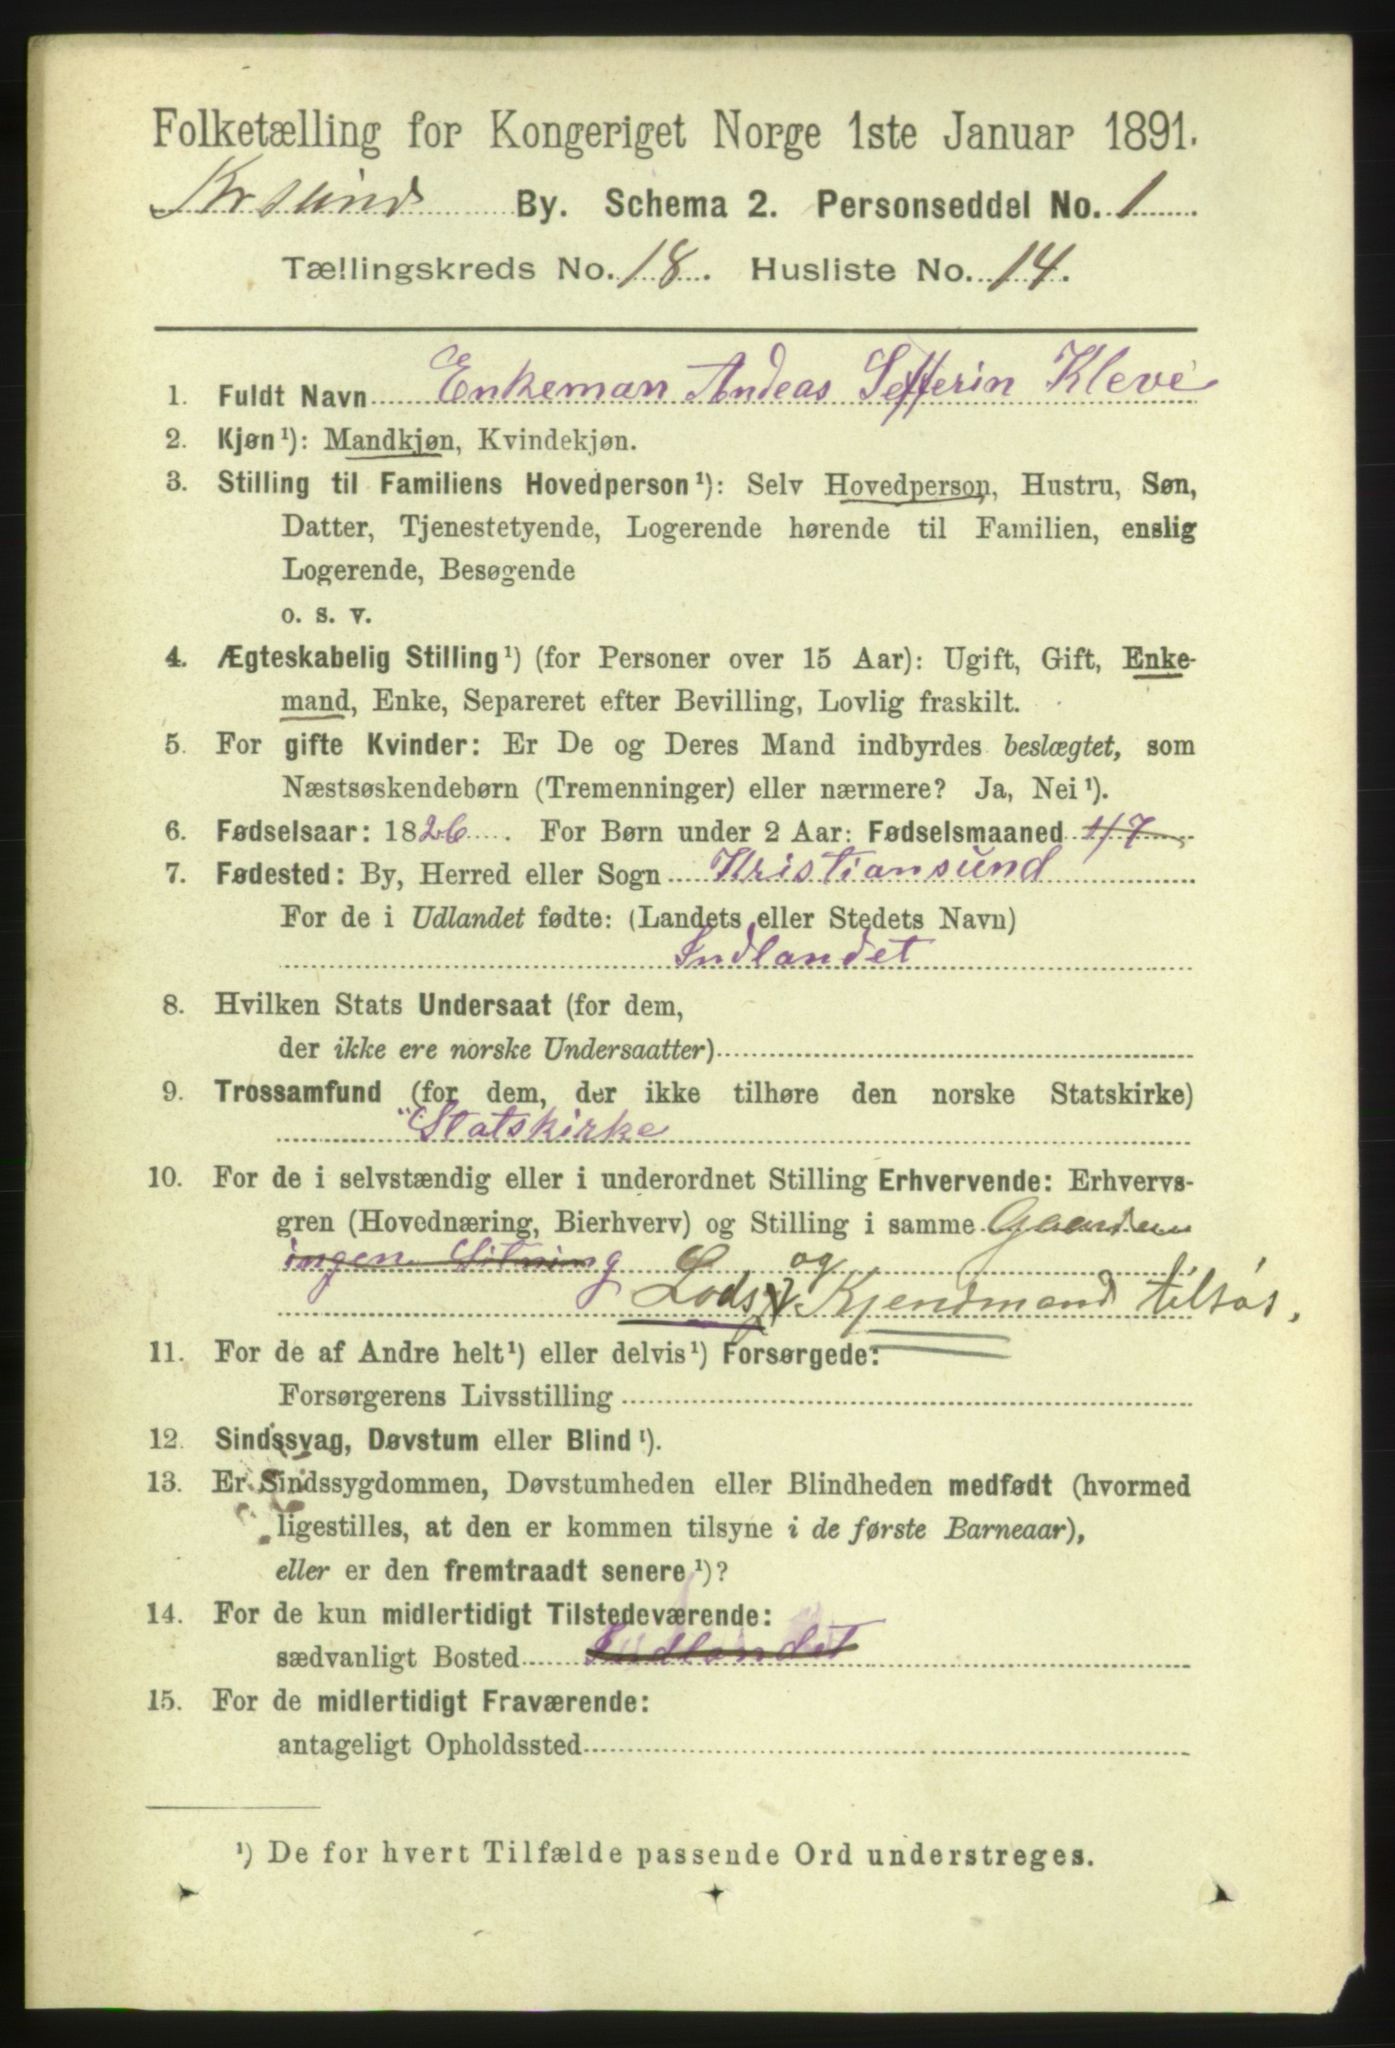 Folketælling for Kongeriget Norge 1ste Januar 1891.
Krsund By. Schema 2. Personseddel No. 1
Tællingskreds No. 18. Husliste No. 14.
1. Fuldt Navn Enkeman Andeas Sefferin Kleve
2. Kjøn¹): Mandkjøn, Kvindekjøn.
3. Stilling til Familiens Hovedperson¹): Selv Hovedperson, Hustru, Søn,
Datter, Tjenestetyende, Logerende hørende til Familien, enslig
Logerende, Besøgende
o. s. v.
4. Ægteskabelig Stilling¹) (for Personer over 15 Aar): Ugift, Gift, Enke-
mand, Enke, Separeret efter Bevilling, Lovlig fraskilt.
5. For gifte Kvinder: Er De og Deres Mand indbyrdes beslægtet, som
Næstsøskendebørn (Tremenninger) eller nærmere? Ja, Nei¹).
6. Fødselsaar: 1826. For Børn under 2 Aar: Fødselsmaaned 4/7
7. Fødested: By, Herred eller Sogn Kristiansund
For de i Udlandet fødte: (Landets eller Stedets Navn)
Indlandet
8. Hvilken Stats Undersaat (for dem,
der ikke ere norske Undersaatter)
9. Trossamfund (for dem, der ikke tilhøre den norske Statskirke)
"Statskirke
10. For de i selvstændig eller i underordnet Stilling Erhvervende: Erhvervs-
gren (Hovednæring, Bierhverv) og Stilling i samme
ingen og
Lods Kjendmand tilsøs.
11. For de af Andre helt¹) eller delvis¹) Forsørgede:
Forsørgerens Livsstilling
12. Sindssvag, Døvstum eller Blind¹).
13. Er Sindssygdommen, Døvstumheden eller Blindheden medfødt (hvormed
ligestilles, at den er kommen tilsyne i de første Barneaar),
eller er den fremtraadt senere¹)?
14. For de kun midlertidigt Tilstedeværende:
sædvanligt Bosted Indlandet
15. For de midlertidigt Fraværende:
antageligt Opholdssted
¹) De for hvert Tilfælde passende Ord understreges.